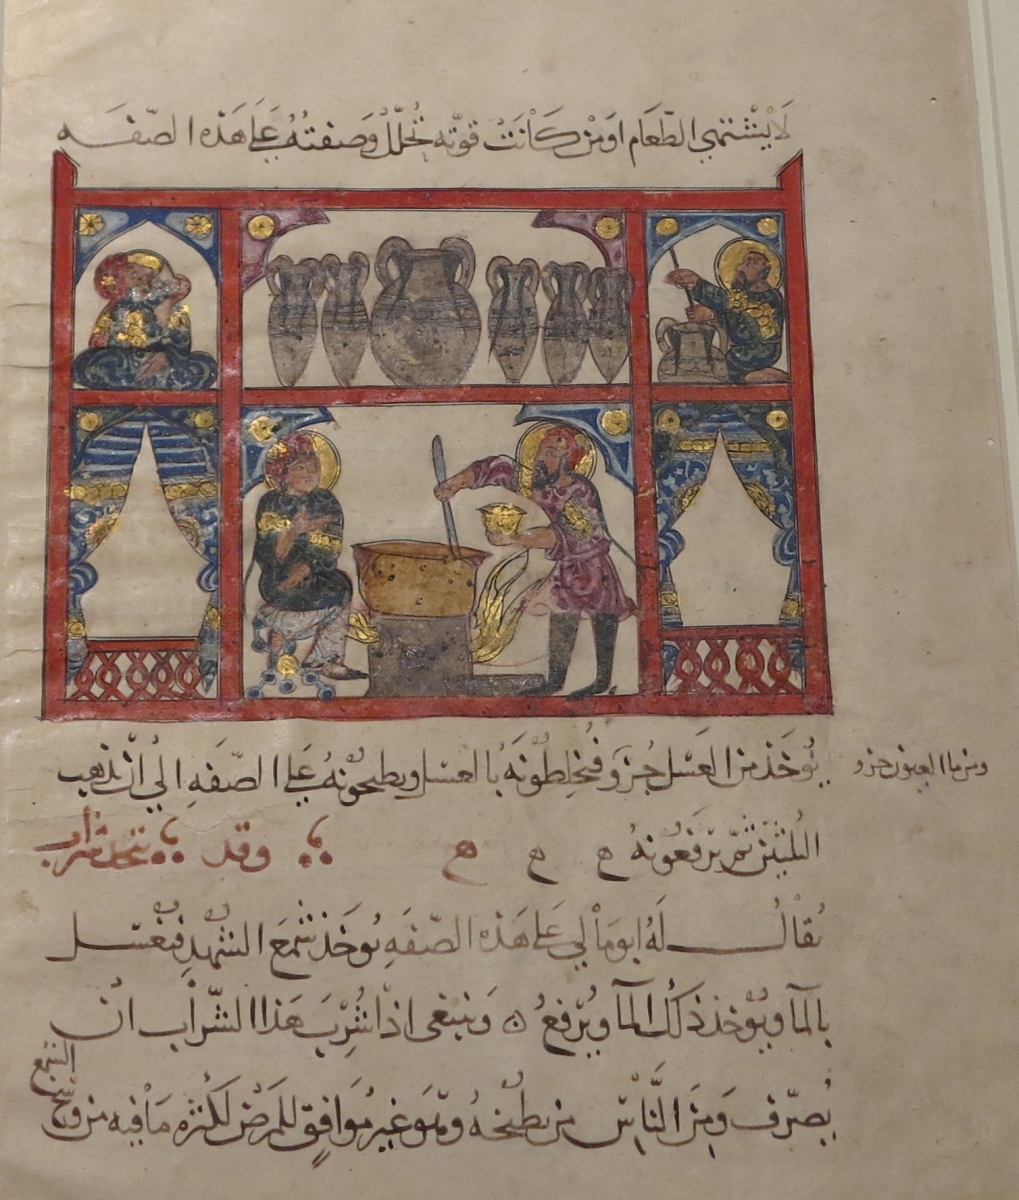 لَا يَشْتَهِي الطَّعَام اومَنْ كَانَتْ قوّته تُحلّلُ وَصفتُهُ عَلَى هَذه الصّفَه
يُوخَذ من العَسَل جُزو فيُخلِطونَه بالعسَل ويطبخُونهُ عَلى الصّفَهِ الي اَنْ يذهب
ومن ما العيون جزو
الثلثين ثمّ يرفَعُونهُ وقد يتخذ شراب
يُقَالُ لَهُ ابومَالي عَلى هَذه الصّفَهِ يُوخَذ شمَعَ الشهدِ فيُغسَل
بالمآ ويُوخذ ذَلكَ المآ ويُرفعُ وَينبغى اذا شُرِبَ هَذا الشّرَاب انْ
يُصرّف وَمنَ النَّاسِ من يطبُخهُ وهَوَ غير مُوَافِقٍ للمرَضَى لكثرَه مَا فيه من وسَخ
الشمع